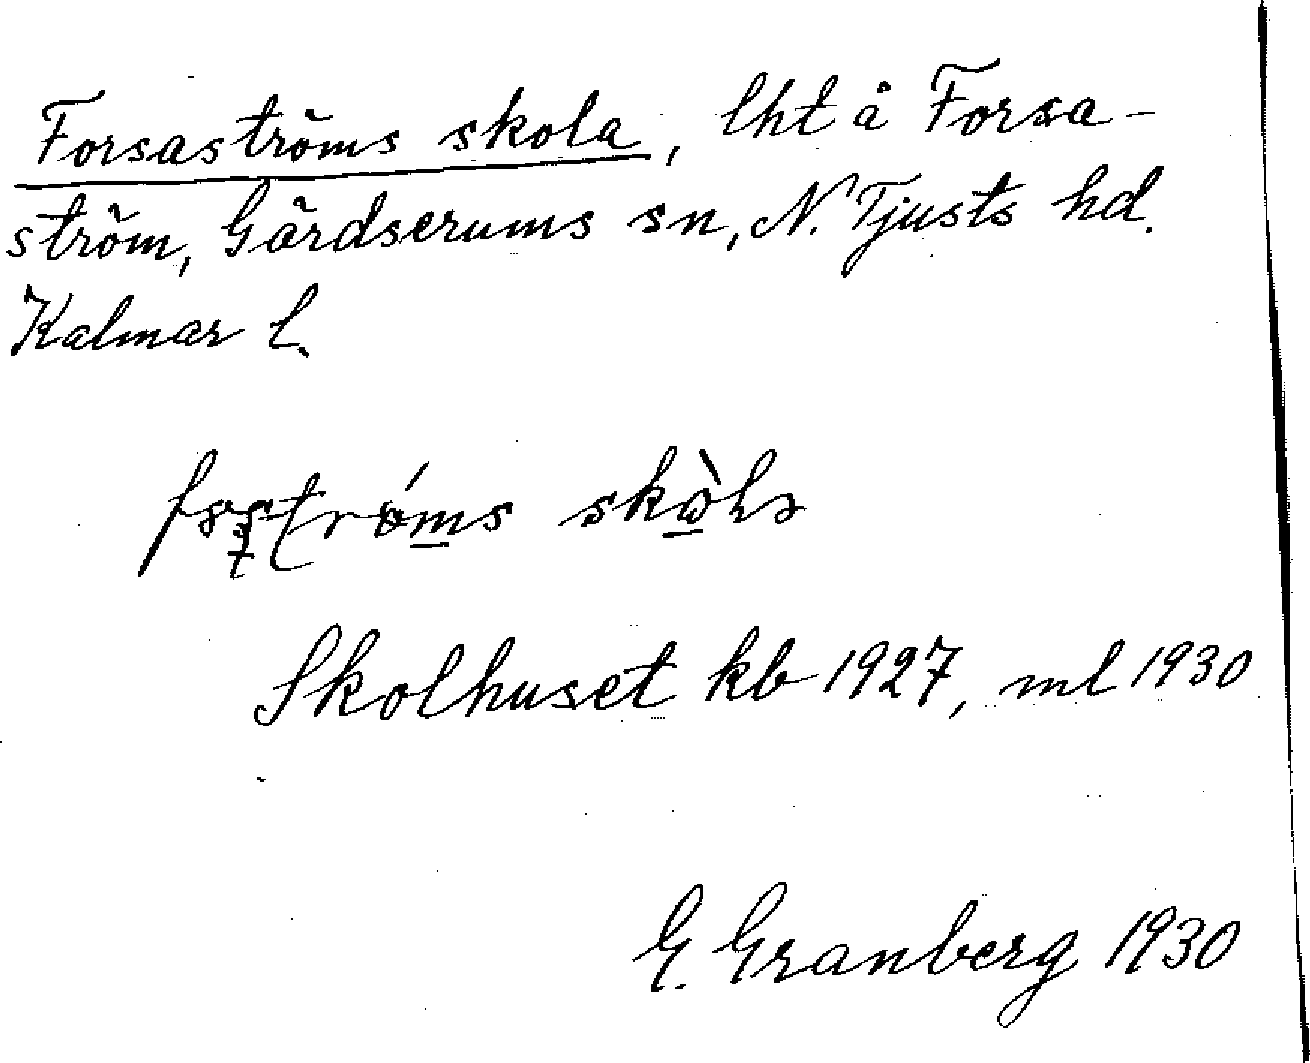 Forsaströms skola, lht å Forsa-
ström, Gärdserums sn, N. Tjusts hd.
Kalmar l.
skola
Skolhuset kb 1927, ml 1930
G. Granberg 1930